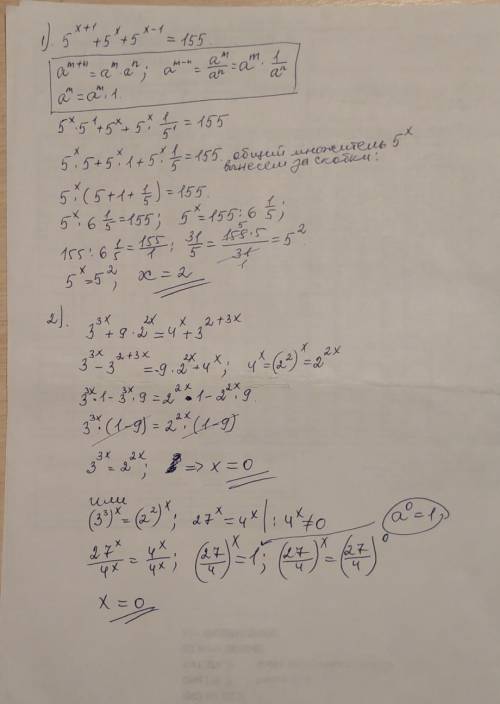 1). 5^(x+1) + 5^x + 5^(x-1) = 155.
a^(m+n) = a^m · a^n; a^(m-n) = a^m/a^n = a^m · 1/a^n
a^m = a^m · 1.
5^x · 5^1 + 5^x + 5^x · 1/5^1 = 155
5^x · 5 + 5^x · 1 + 5^x · 1/5 = 155. общий множитель 5^x
вынесем за скобки:
5^x · (5 + 1 + 1/5) = 155.
5^x · 6 1/5 = 155; 5^x = 155 : 6 1/5;
155 : 6 1/5 = 155/1 : 31/5 = 155 · 5/31 = 5^2
5^x = 5^2; x = 2
2).
3^(3x) + 9 · 2^(2x) = 4^x + 3^(2+3x)
3^(3x) - 3^(2+3x) = -9 · 2^(2x) + 4^x; 4^x = (2^2)^x = 2^(2x)
3^(3x) · 1 - 3^(3x) · 9 = 2^(2x) · 1 - 2^(2x) · 9.
3^(3x) · (1-9) = 2^(2x) · (1-9)
3^(3x) = 2^(2x); => x = 0
или
(3^3)^x = (2^2)^x; 27^x = 4^x | : 4^x ≠ 0
a^0 = 1,
27^x/4^x = 4^x/4^x; (27/4)^x = 1; (27/4)^x = (27/4)^0
x = 0